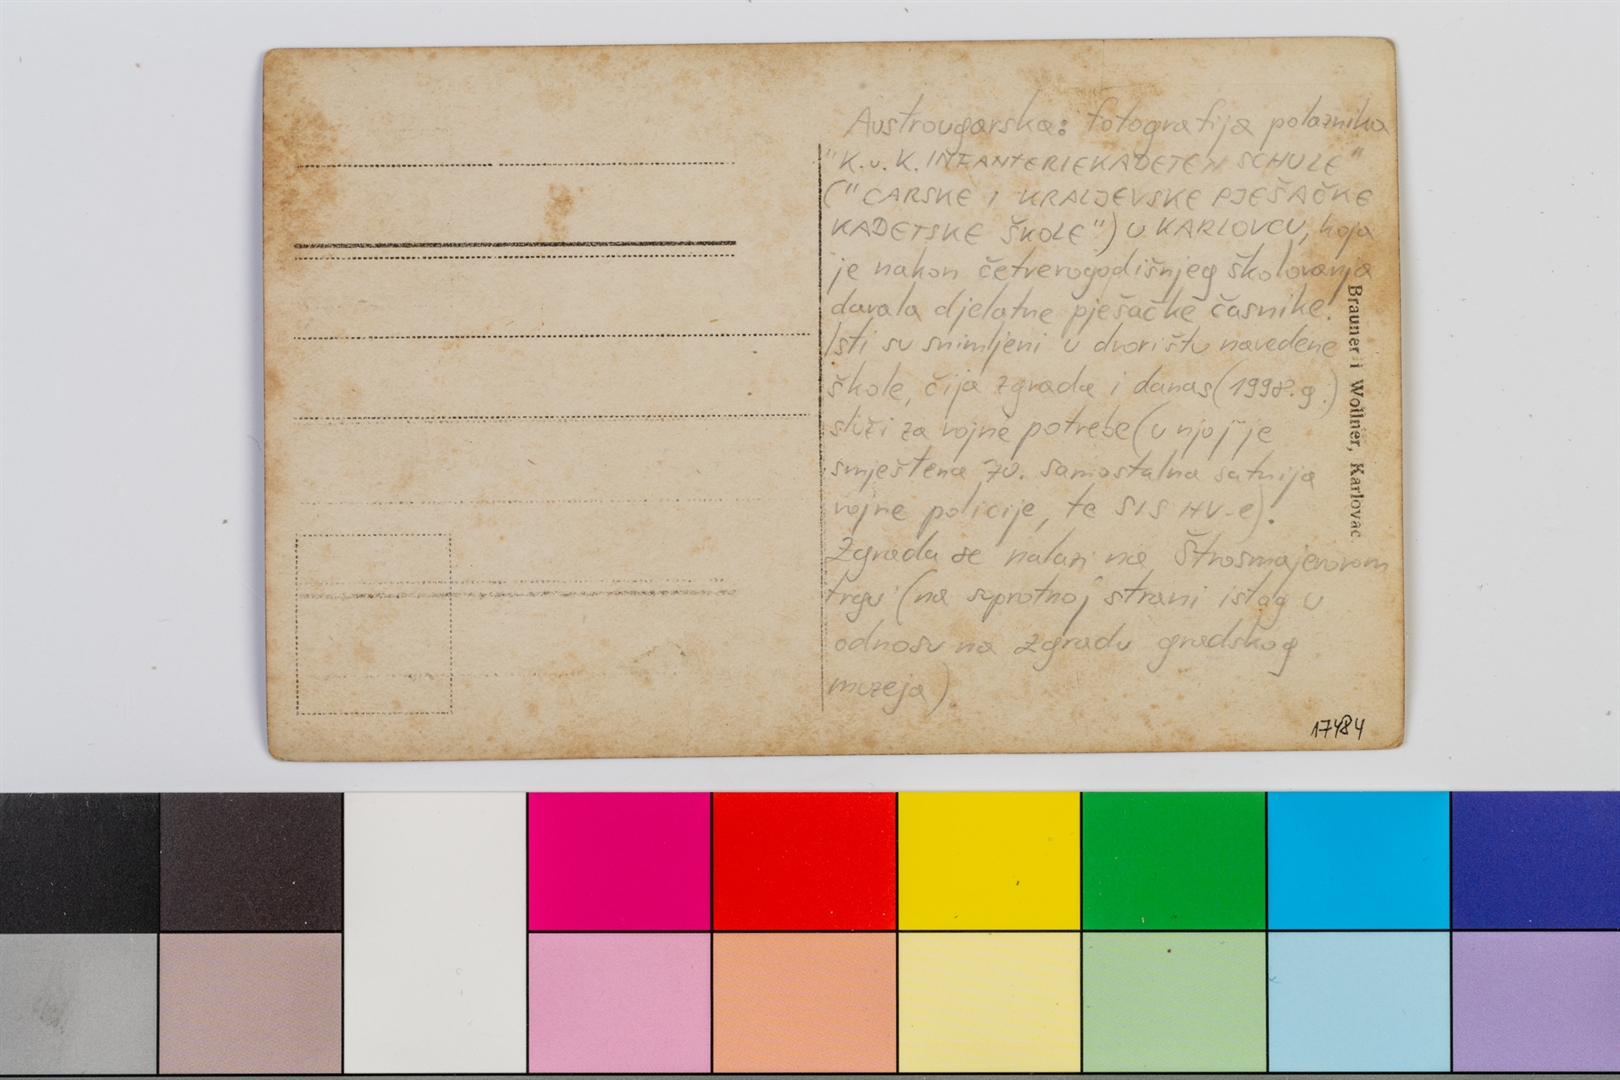 Austrougarska: fotografija polaznika
"K.u.K. INFANTERIEKADETEN SCHULE"
("CARSKE I KRALJEVSKE PJEŠAČKE
KADETSKE ŠKOLE") U KARLOVCU, koja
je nakon četverogodišnjeg školovanja
davala djelatne pješačke časnike.
Isti su snimljeni u dvorištu navedene
škole, čija zgrada i danas (1998.g.)
služi za vojne potrebe (u njoj je
smještena 70. samostalna satnija
vojne policije, te SIS HV-e).
Zgrada se nalazi na Štrosmajerovom
trgu (na suprotnoj strani istog u
odnosu na zgradu gradskog
muzeja).
Brauner i Wollner, Karlovac
17484